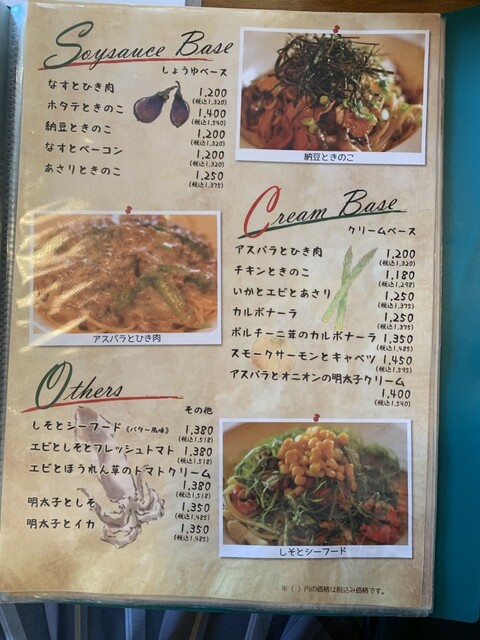 Soysauce Base
しょうゆベース
なすとひき肉 1,200
(税込1,320)
ホタテときのこ 1,400
(税込1,540)
納豆ときのこ 1,200
(税込1,320)
なすとベーコン 1,200
(税込1,320)
あさりときのこ 1,250
(税込1,375)
納豆ときのこ
Cream Base
クリームベース
アスパラとひき肉 1,200
(税込1,320)
チキンときのこ 1,180
(税込1,298)
いかとエビとあさり 1,250
(税込1,375)
カルボナーラ 1,250
(税込1,375)
ポルチーニ茸のカルボナーラ 1,350
(税込1,485)
スモークサーモンとキャベツ 1,450
(税込1,595)
アスパラとオニオンの明太子クリーム
1,400
(税込1,540)
アスパラとひき肉
Others
その他
しそとシーフード (バター風味) 1,380
(税込1,518)
エビとしそとフレッシュトマト 1,380
(税込1,518)
エビとほうれん草のトマトクリーム
1,380
(税込1,518)
明太子としそ 1,350
(税込1,485)
明太子とイカ 1,350
(税込1,485)
しそとシーフード
※( )内の価格は税込み価格です。